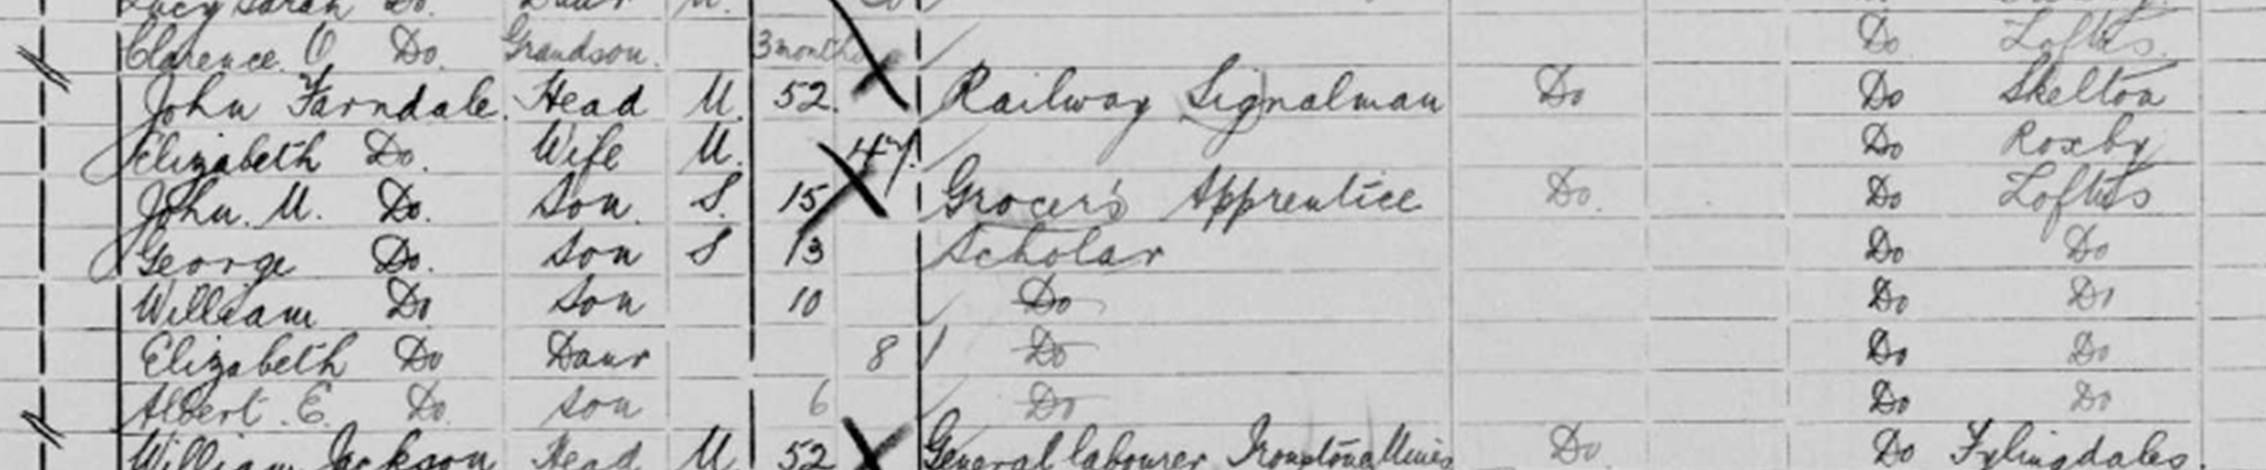 Lucy Sarah Do. Daur M.
Clarence O Do. Grandson. 3 months Do Loftus.
John Farndale. Head M. 52. Railway Signalman Do Do Skelton
Elizabeth Do. Wife M. 47. Do Roxby
John. M. Do. Son. S. 15 Grocer's Apprentice Do. Do Loftus
George Do. Son S 13 Scholar Do Do
William Do Son 10 Do Do Do
Elizabeth Do Daur 8 Do Do Do
Albert. E. Do. Son 6 Do Do Do
William Jackson Head M 52 General labourer Ironstone Mines Do. Do Fylingdales.